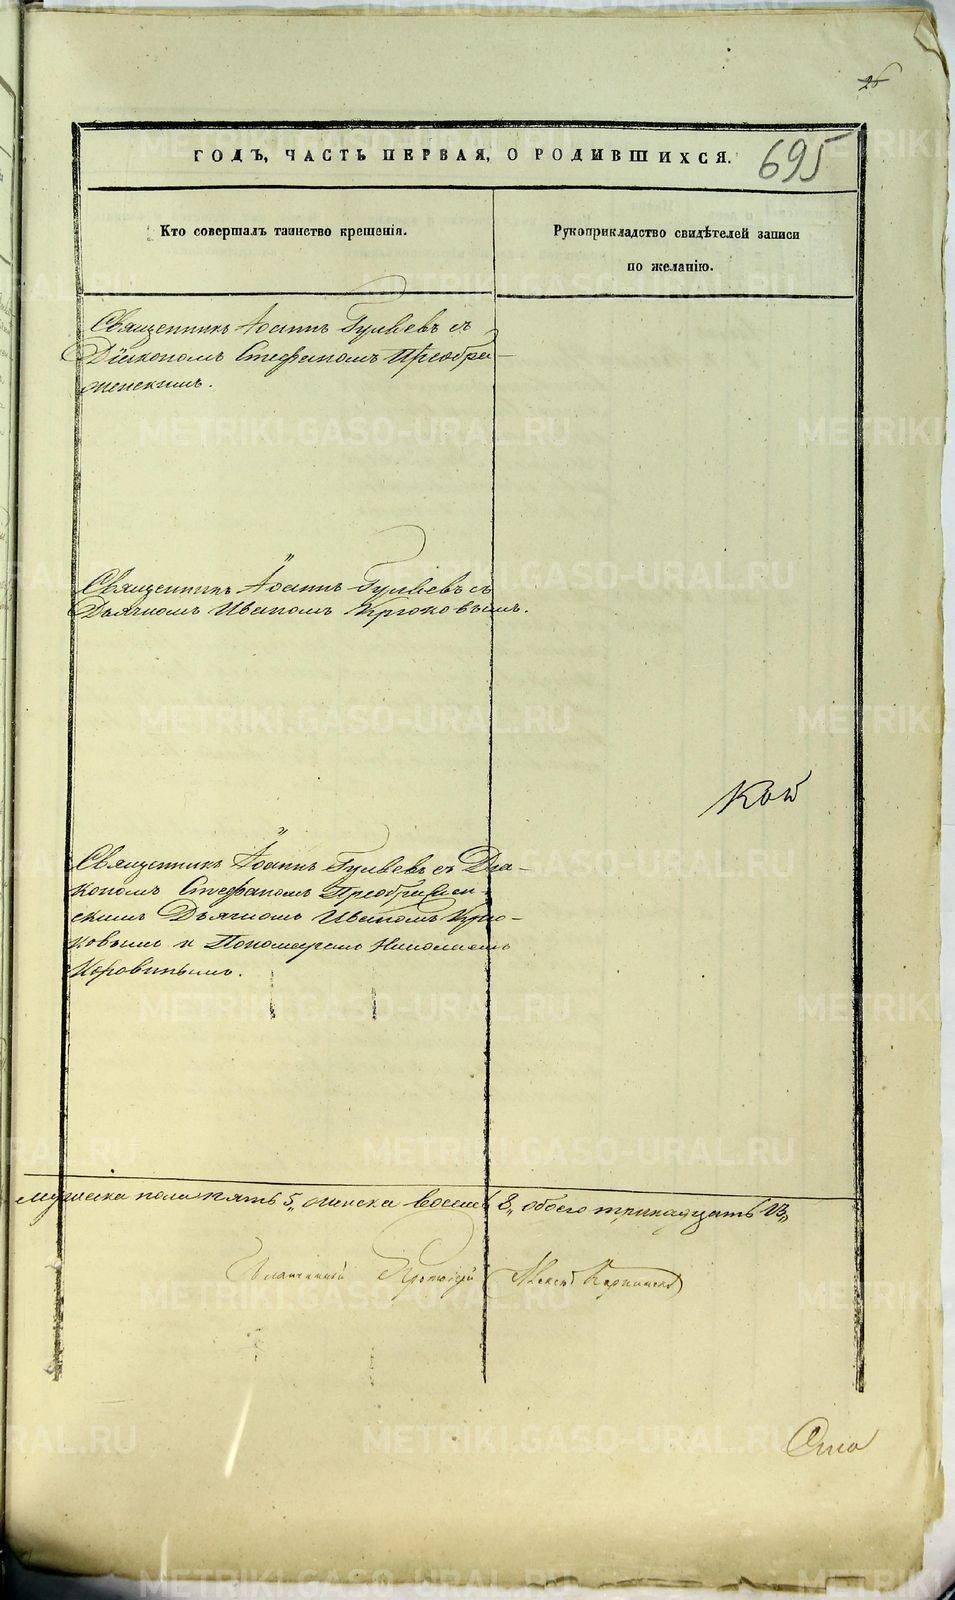 26
ГОДЪ, ЧАСТЬ ПЕРВАЯ, О РОДИВШИХСЯ. 695
Кто совершалъ таинство крещенія.
Рукоприкладство свидѣтелей записи
по желанію.
Священникъ Іоаннъ Гуляевъ съ
Діакономъ Стефаномъ Преобра-
женскимъ.
Священникъ Іоаннъ Гуляевъ съ
Дьячкомъ Иваномъ Крюковымъ.
Священникъ Іоаннъ Гуляевъ съ Діа-
кономъ Стефаномъ Преображен-
скимъ Дьячкомъ Иваномъ Крю-
ковымъ и Пономаремъ Николаемъ
Коровинымъ.
мужеска пола пять 5, женска восемь 8, обоего тринадцать 13,
Благочинный Протоіерей
METRIKI.GASO-URAL.RU